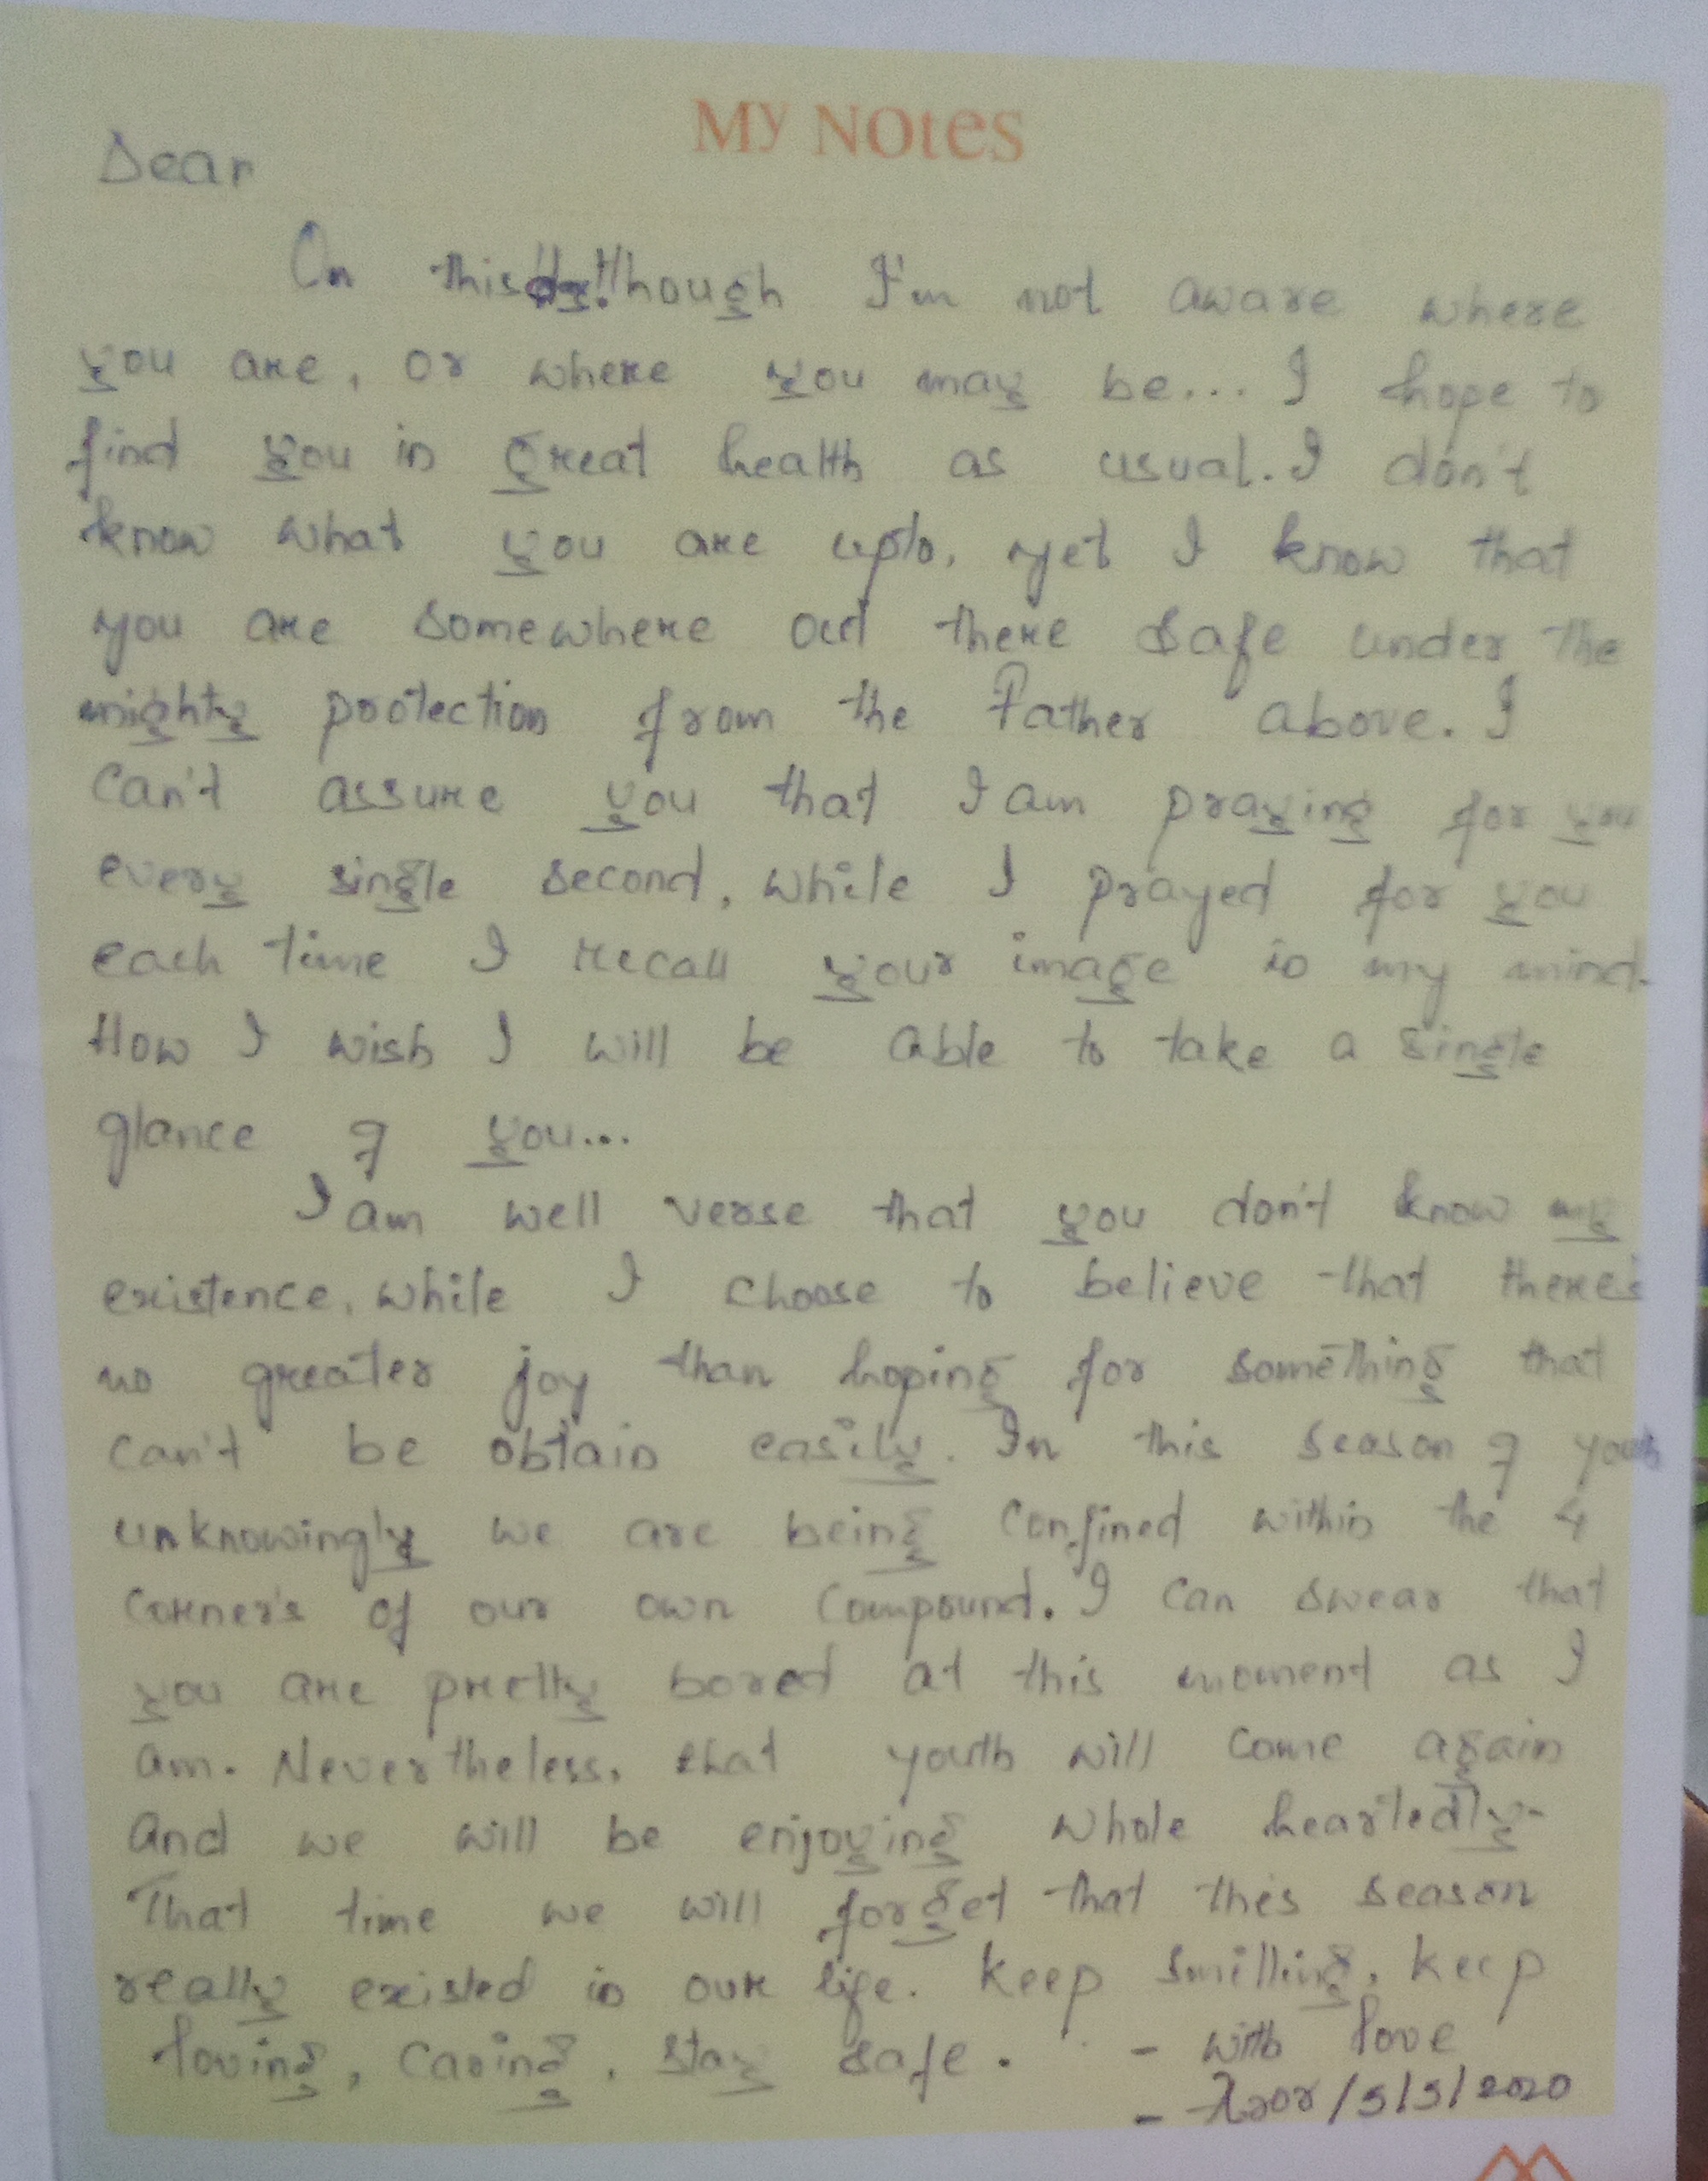 My Notes
Dear
On this day! though I'm not aware where
you are, or where you may be... I hope to
find you in great health as usual. I don't
know what you are upto, yet I know that
you are somewhere out there safe under the
mighty protection from the Father above. I
can't assure you that I am praying for you
every single second, while I prayed for you
each time I recall your image in my mind.
How I wish I will be able to take a single
glance of you...
I am well verse that you don't know my
existence, while I choose to believe that there's
no greater joy than hoping for something that
can't be obtain easily. In this season of youth
unknowingly we are being confined within the 4
corner's of our own compound. I can swear that
you are pretty bored at this moment as I
am. Nevertheless, that youth will come again
and we will be enjoying whole heartedly-
That time we will forget that this season
really existed in our life. Keep smilling, keep
loving, caring, stay safe. - with love
- /5/5/2020